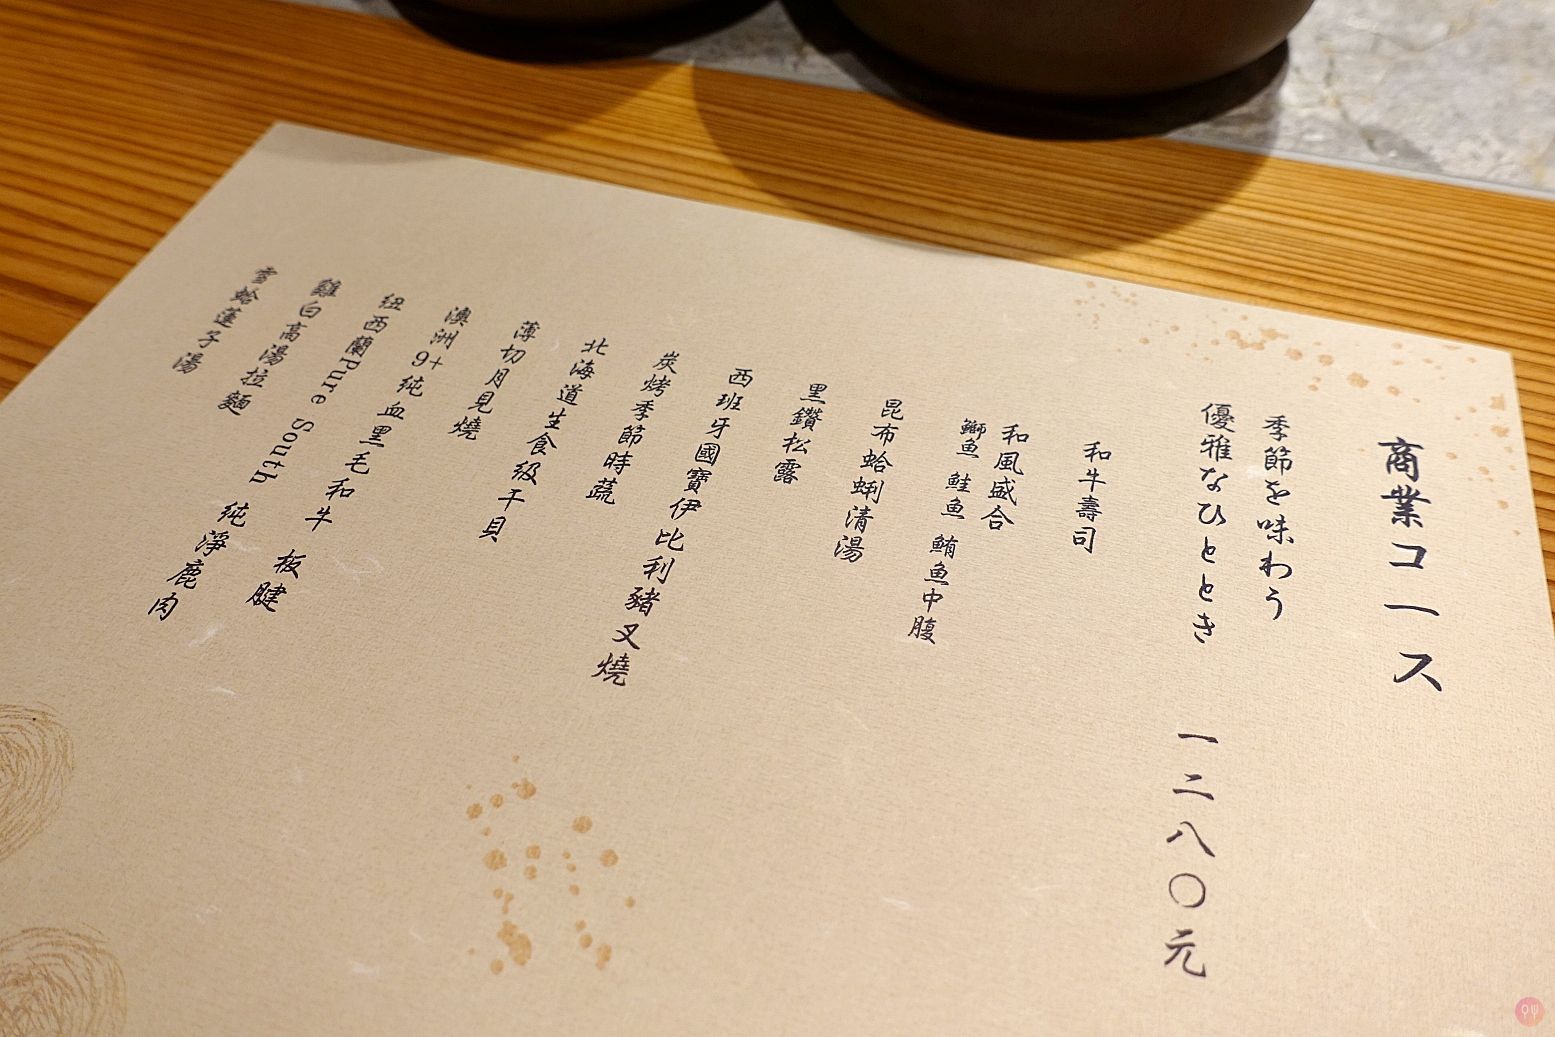 商業コース
季節を味わう
優雅なひととき
一二八〇元
和牛壽司
和風盛合
鰤魚 鮭魚 鮪魚中腹
昆布蛤蜊清湯
黑鑽松露
西班牙國寶伊比利豬叉燒
炭烤季節時蔬
北海道生食級干貝
薄切月見燒
澳洲9+純血黑毛和牛 板腱
紐西蘭Pure South 純淨鹿肉
雞白高湯拉麵
雪蛤蓮子湯